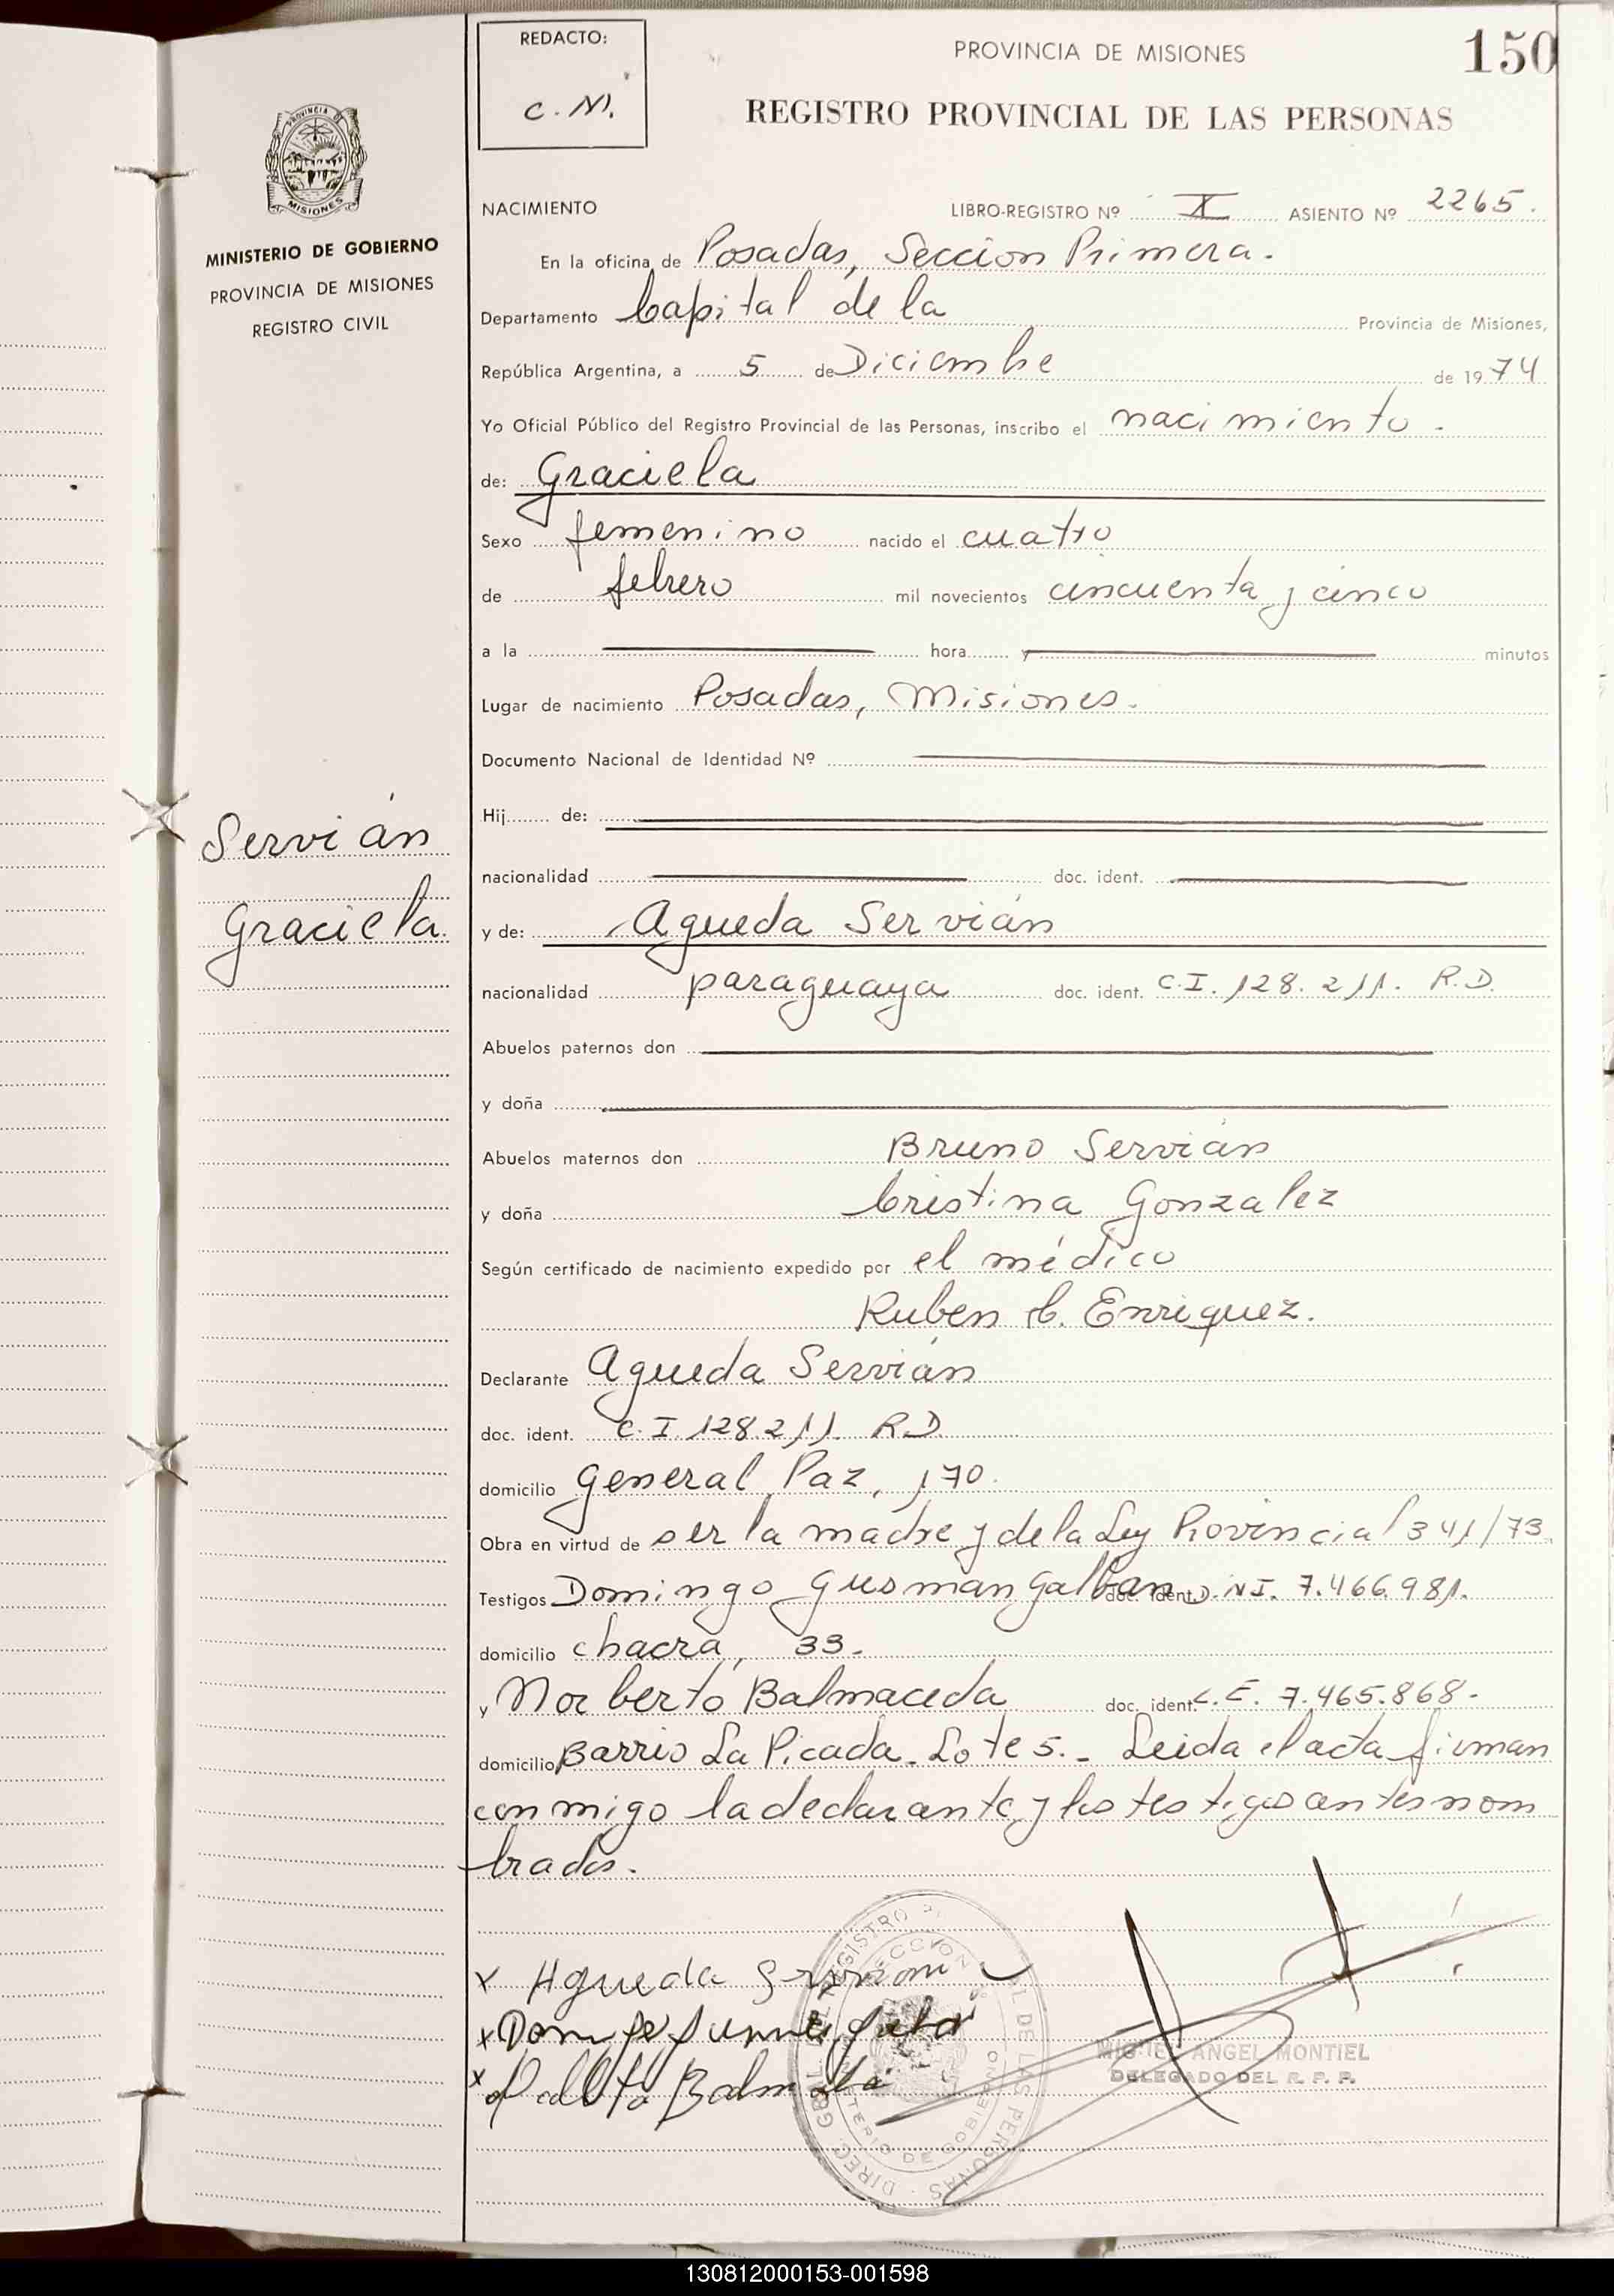 REDACTO:
C. M.
PROVINCIA DE MISIONES
150
REGISTRO PROVINCIAL DE LAS PERSONAS
PROVINCIA DE
MISIONES
MINISTERIO DE GOBIERNO
PROVINCIA DE MISIONES
REGISTRO CIVIL
Servián
Graciela.
NACIMIENTO LIBRO-REGISTRO Nº X ASIENTO Nº 2265.
En la oficina de Posadas, Seccion Primera.
Departamento Capital de la Provincia de Misiones,
República Argentina, a 5 de Diciembre de 19 74
Yo Oficial Público del Registro Provincial de las Personas, inscribo el nacimiento.
de: Graciela
Sexo femenino nacido el cuatro
de febrero mil novecientos cincuenta y cinco
a la hora y minutos
Lugar de nacimiento Posadas, Misiones.
Documento Nacional de Identidad Nº
Hij de:
nacionalidad doc. ident.
y de: Agueda Servián
nacionalidad paraguaya doc. ident. C.I. 128.211. R.D.
Abuelos paternos don
y doña
Abuelos maternos don Bruno Servián
y doña Cristina Gonzalez
Según certificado de nacimiento expedido por el médico
Ruben Enriquez.
Declarante Agueda Servián
doc. ident. C.I 128.211. R.D.
domicilio General Paz, 170.
Obra en virtud de ser la madre y de la Ley Provincial 341/73.
Testigos Domingo Gusman Galban doc. ident. D.N.I. 7.466.981.
domicilio chacra, 33.
y Norberto Balmaceda doc. ident. L.E. 7.465.868.
domicilio Barrio La Picada. Lote 5.- Leida el acta firman
conmigo la declarante y los testigos antes nom
brados.
x Agueda Servian
x
x
DIREC. GRAL. DEL REGISTRO PCIAL DE LAS PERSONAS
SECCION
MINISTERIO DE GOBIERNO
MIGUEL ANGEL MONTIEL
DELEGADO DEL R. P. P.
130812000153-001598